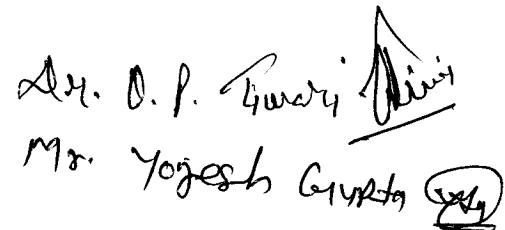 Dr. O. P. Tiwari
Mr. Yogesh Gupta